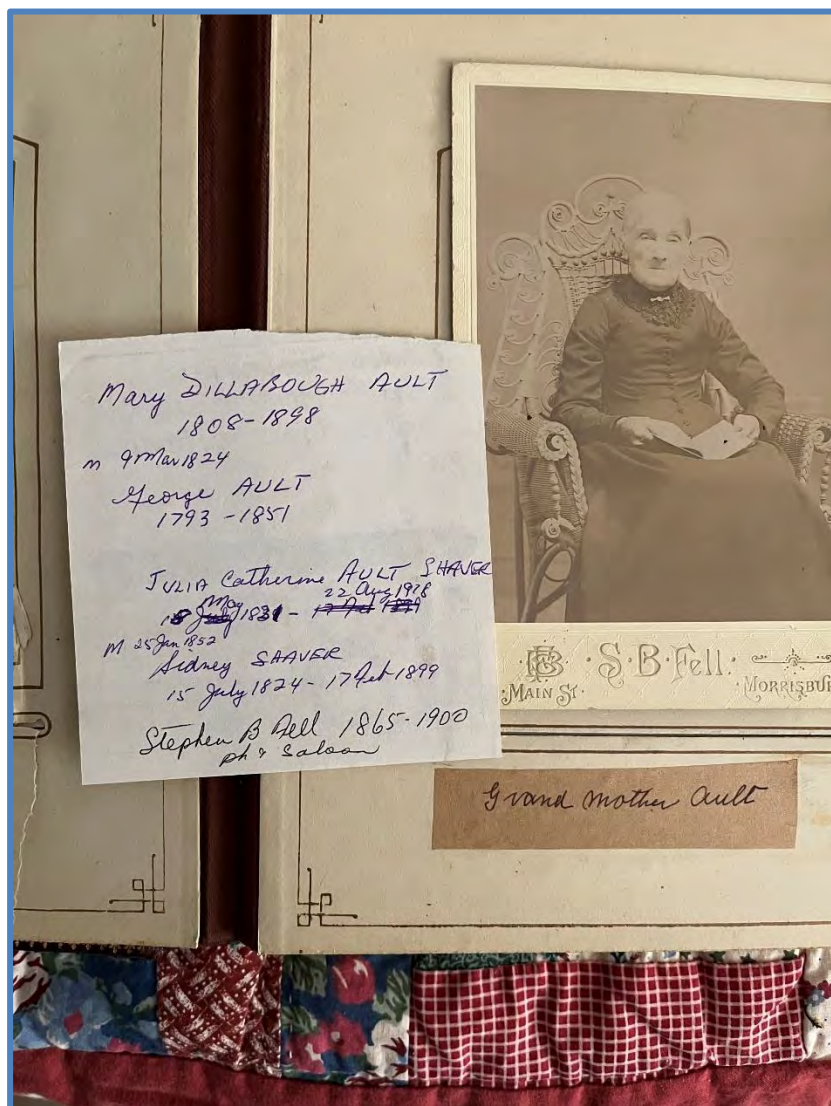 Mary DILLABOUGH AULT
1808-1898
m 9 Mar 1824
George AULT
1793-1851
JULIA Catherine AULT SHAVER
22 Aug 1918
18 May 1831 -
M 25 Jan 1852
Sidney SHAVER
15 July 1824 - 17 Feb 1899
Stephen B Fell 1865-1900
ph & Saloon
MAIN ST. S.B. Fell. MORRISBU
Grand mother Ault